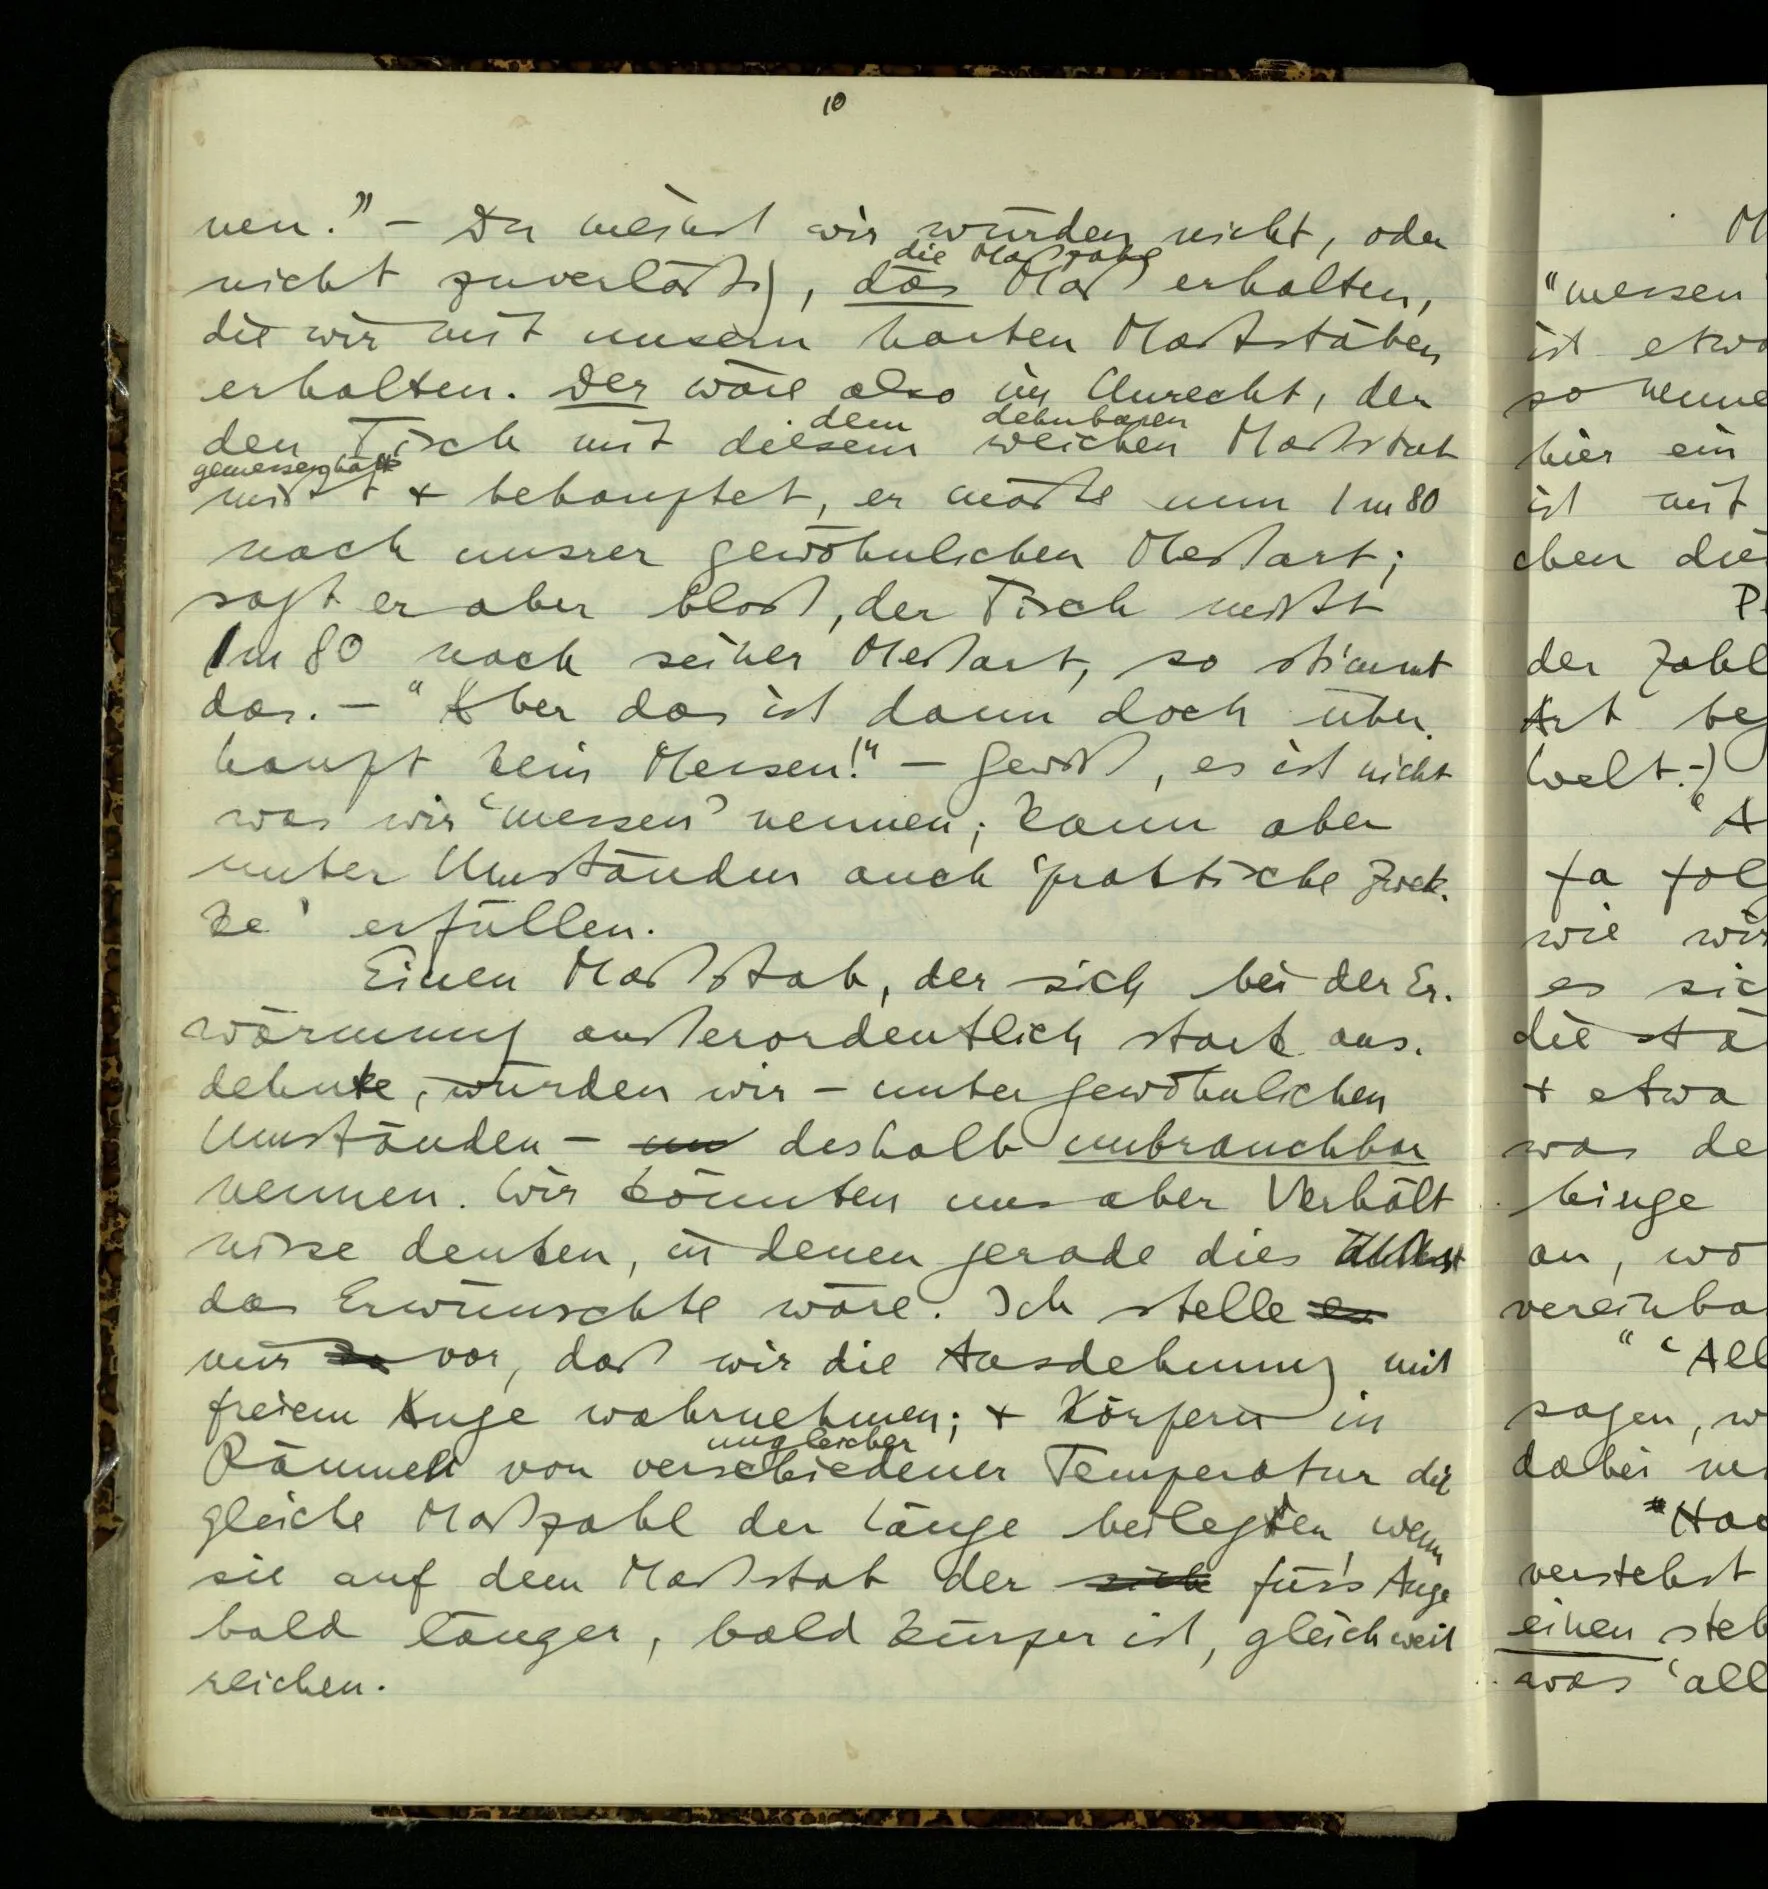 10
nen." – Du meinst wir würden nicht, oder
die Maßzahl
nicht zuverläßig, das Maß erhalten,
die wir mit unsern harten Maßstäben
erhalten. Der wäre also im Unrecht, der
dem dehnbaren
den Tisch mit diesem weichen Maßstab
gemessen hätte
mißt + behauptet, er mäße nun 1m80
nach unsrer gewöhnlichen Meßart;
sagt er aber bloß, der Tisch mißt
1m80 nach seiner Meßart, so stimmt
das. – "Aber das ist dann doch über-
haupt kein Messen!" – Gewiß, es ist nicht
was wir 'messen' nennen; kann aber
unter Umständen auch 'praktische Zwek-
ke' erfüllen.
Einen Maßstab, der sich bei der Er-
wärmung außerordentlich stark aus-
dehnte, würden wir – unter gewöhnlichen
Umständen – un deshalb unbrauchbar
nennen. Wir könnten uns aber Verhält
nisse denken, in denen gerade dies
das Erwünschte wäre. Ich stelle es
mir so vor, daß wir die Ausdehnung mit
freiem Auge wahrnehmen; + Körpern in
ungleicher
Räumen von verschiedener Temperatur die
gleiche Maßzahl der Länge beilegten, wenn
sie auf dem Maßstab der sich für's Auge
bald länger, bald kürzer ist, gleich weit
reichen.
"messen
ist etwa
so nenne
hier ein
ist mit
chen die
der Zahl
Art
Welt.–)
"A
wie wir
es sic
die
+ etwa
was de
an, wo
vereinba
" 'All
sagen, w
dabei
verstehst
einen steh
was 'all